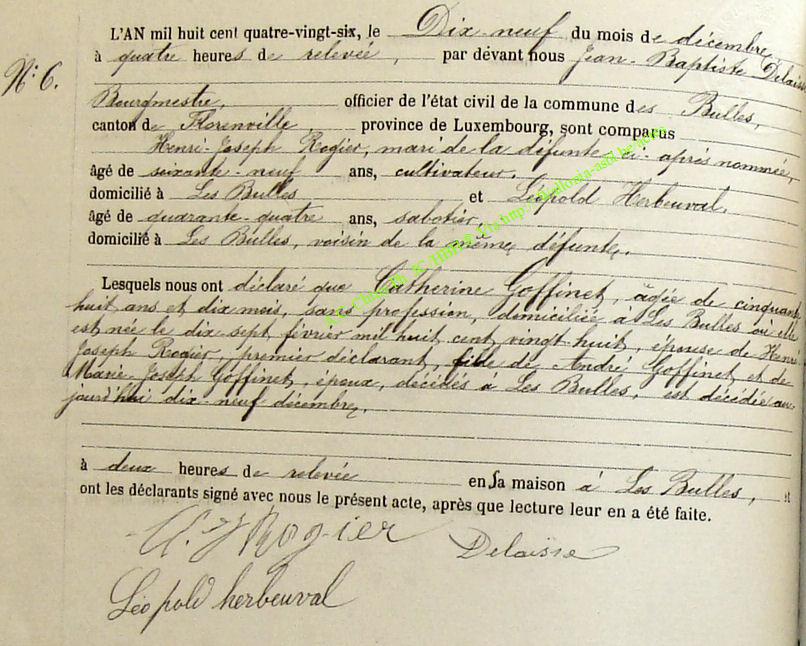 L'AN mil huit cent quatre-vingt-six, le Dix-neuf du mois de décembre
à quatre heures de relevée, par devant nous Jean-Baptiste Delaisse
N: 6.
Bourgmestre, officier de l'état civil de la commune des Bulles,
canton de Florenville, province de Luxembourg, sont comparus
Henri-Joseph Rogier, mari de la défunte ci-après nommée,
âgé de soixante-neuf ans, cultivateur.
domicilié à Les Bulles et Léopold Herbeuval,
âgé de quarante-quatre ans, sabotier,
domicilié à Les Bulles, voisin de la même défunte.
Lesquels nous ont déclaré que Catherine Goffinet, âgée de cinquante
huit ans et dix mois, sans profession, domiciliée à Les Bulles où elle
est née le dix-sept février mil huit cent vingt-huit, épouse de Henri
Joseph Rogier, premier déclarant, fille de André Goffinet et de
Marie-Joseph Goffinet, époux, décédés à Les Bulles, est décédée au-
jourd'hui dix-neuf décembre,
à deux heures de relevée en sa maison à Les Bulles, et
ont les déclarants signé avec nous le présent acte, après que lecture leur en a été faite.
H. J Rogier Delaisse
Léopold herbeuval